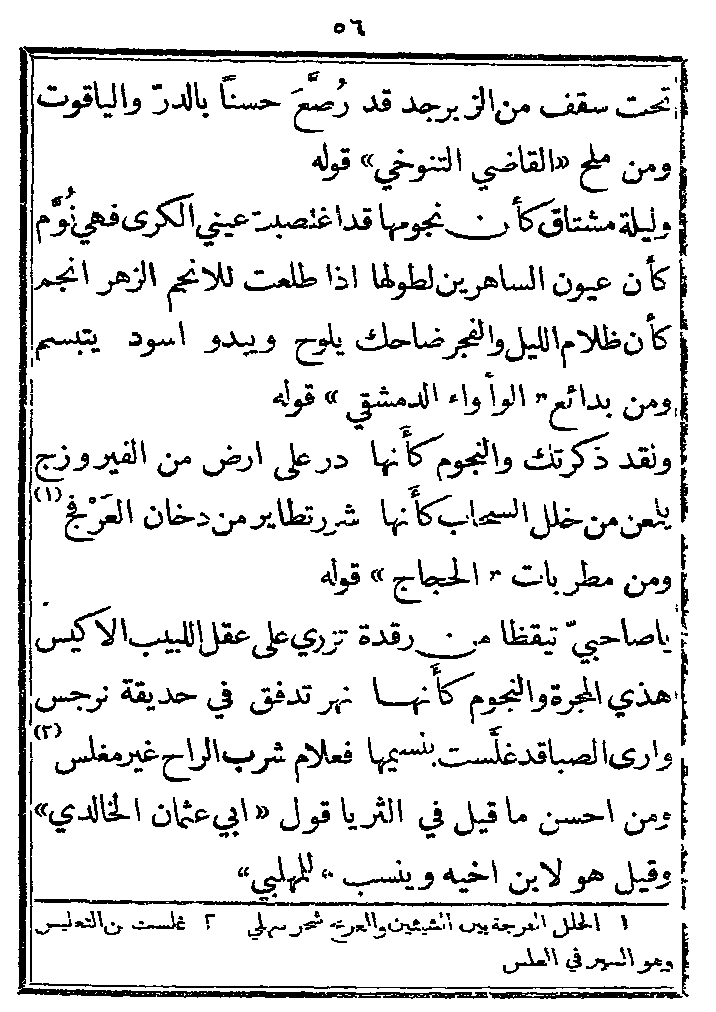 ٥٦
تحت سقف من الزبرجد قد رُصَّعَ حسناً بالدرّ والياقوت
ومن ملح «القاضي التنوخي» قوله
وليلة مشتاق كأن نجومها قد اغتصبت عيني الكرى فهي نُوَّم
كأن عيون الساهرين لطولها اذا طلعت للانجم الزهر انجم
كأن ظلام الليل والفجر ضاحك يلوح ويبدو اسود يتبسم
ومن بدائع «الوأواء الدمشقي» قوله
ولقد ذكرتك والنجوم كأنها در على ارض من الفيروزج
يلمعن من خلل السحاب كأنها شرر تطاير من دخان العَرْفج (١)
ومن مطربات «الحجاج» قوله
ياصاحبيّ تيقظا من رقدة تزري على عقل اللبيب الاكيس
هذي المجرة والنجوم كأنها نهر تدفق في حديقة نرجس
وارى الصبا قد غلَّست بنسيمها فعلام شرب الراح غير مغلس (٢)
ومن احسن ما قيل في الثريا قول «ابي عثمان الخالدي»
وقيل هو لابن اخيه وينسب «للمهلبي»
١ الخلل الفرجة بين الشيئين والعرفج شجر سهلي ٢ غلست من التغليس
وهو السير في الغلس